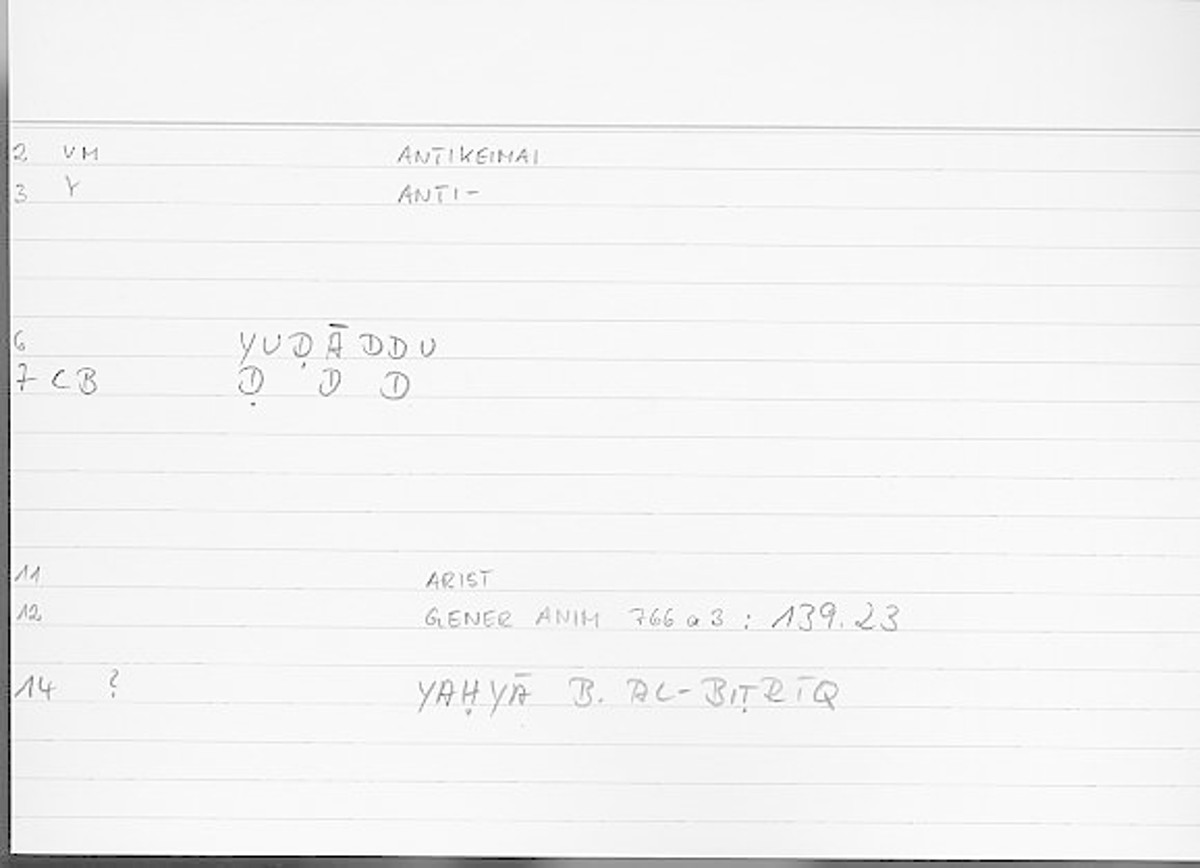 2 VM ANTIKEIMAI
3 Y ANTI-
6 YUḌĀDDU
7 CB Ḍ D D
11 ARIST
12 GENER ANIM 766 a 3 : 139.23
14 ? YAḤYĀ B. AL-BIṬRĪQ